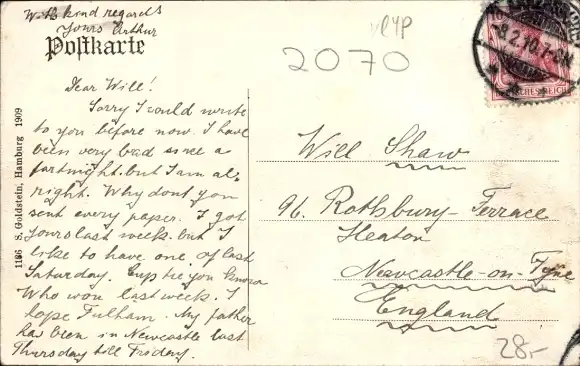 With kind regards
Yours Arthur
Postkarte
Dear Will!
Sorry I could write
to you before now I have
been very bad since a
fortnight. but I am al-
right. Why dont you
sent every paper. I got
Yours last week. but I
like to have one of last
Saturday. you
Who won last week. I
hope Fulham. My father
has been in Newcastle last
Thursday till Friday.
1196 S. Goldstein, Hamburg 1909
2070
8.2.10.7-8N.
DEUTSCHES REICH
Will Shaw
96. Rothbury-Terrace
Heaton
Newcastle-on-Tyne
England
28.-